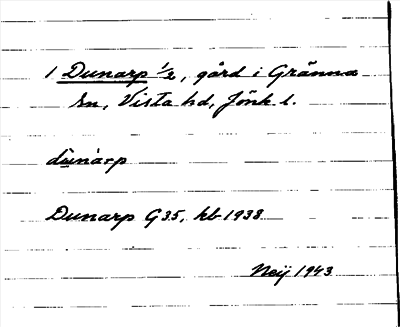 1 Dunarp 1/2, gård i Gränna
sn, Vista hd, Jönk l.
dùnárp
Dunarp G35, kb 1938
Neij 1943